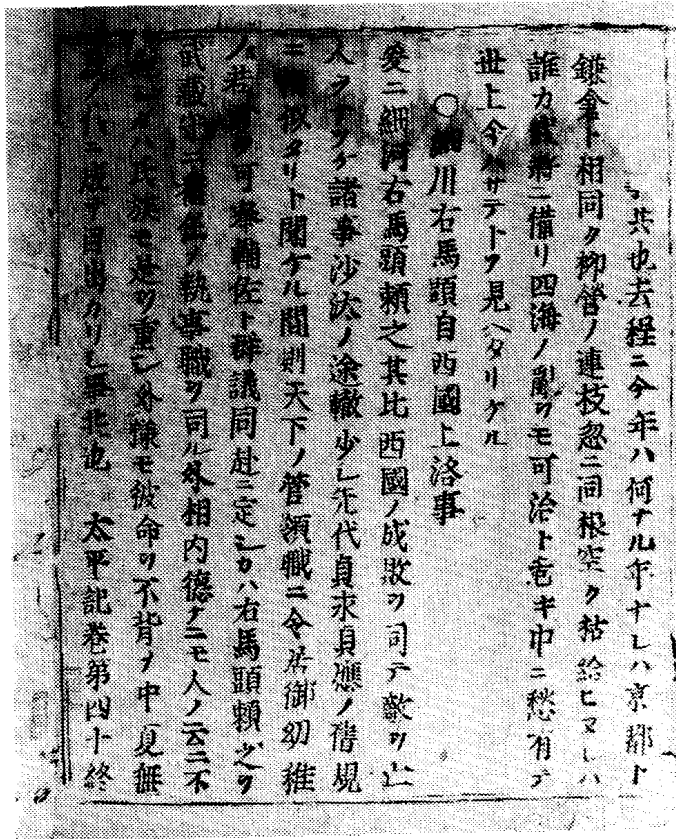 共也去程ニ今年ハ何ナル年ナレハ京都ト
鎌倉ト相同ク柳營ノ連枝忽ニ同根空ク枯給ヒヌレハ
誰カ武將ニ備リ四海ノ亂ヲモ可治ト危キ中ニ愁有テ
世上今ハサテトソ見ヘタリケル
○細川右馬頭自西國上洛事
爰ニ細河右馬頭頼之其比西國ノ成敗ヲ司テ敵ヲ亡
人ヲナツケ諸事沙汰ノ途轍少シ先代貞永貞應ノ舊規
ニ相似タリト聞ケル間則天下ノ管領職ニ令居御幼稚
ノ若君ヲ可奉輔佐ト群議同赴ニ定シカハ右馬頭頼之ヲ
武藏守ニ補任シ執事職ヲ司ル外相内德ケニモ人ノ云ニ不
シカハ氏族モ是ヲ重シ外樣モ彼命ヲ不背ノ中夏無
爲ノ代ニ成テ目出カリシ事共也 太平記卷第四十終